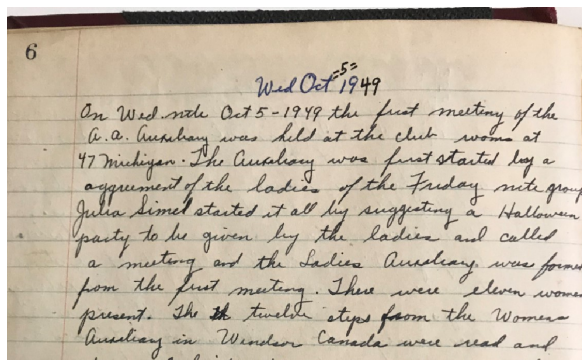 6
Wed Oct =5= 1949
On Wed nite Oct 5-1949 the first meeting of the
A.A. Auxiliary was held at the club rooms at
47 Michigan. The Auxiliary was first started by a
aggreement of the ladies of the Friday nite group
Julia Simel started it all by suggesting a Halloween
party to be given by the ladies and called
a meeting and the Ladies Auxiliary was formed
from the first meeting. There were eleven women
present. The twelve steps from the Womens
Auxiliary in Windsor Canada were read and